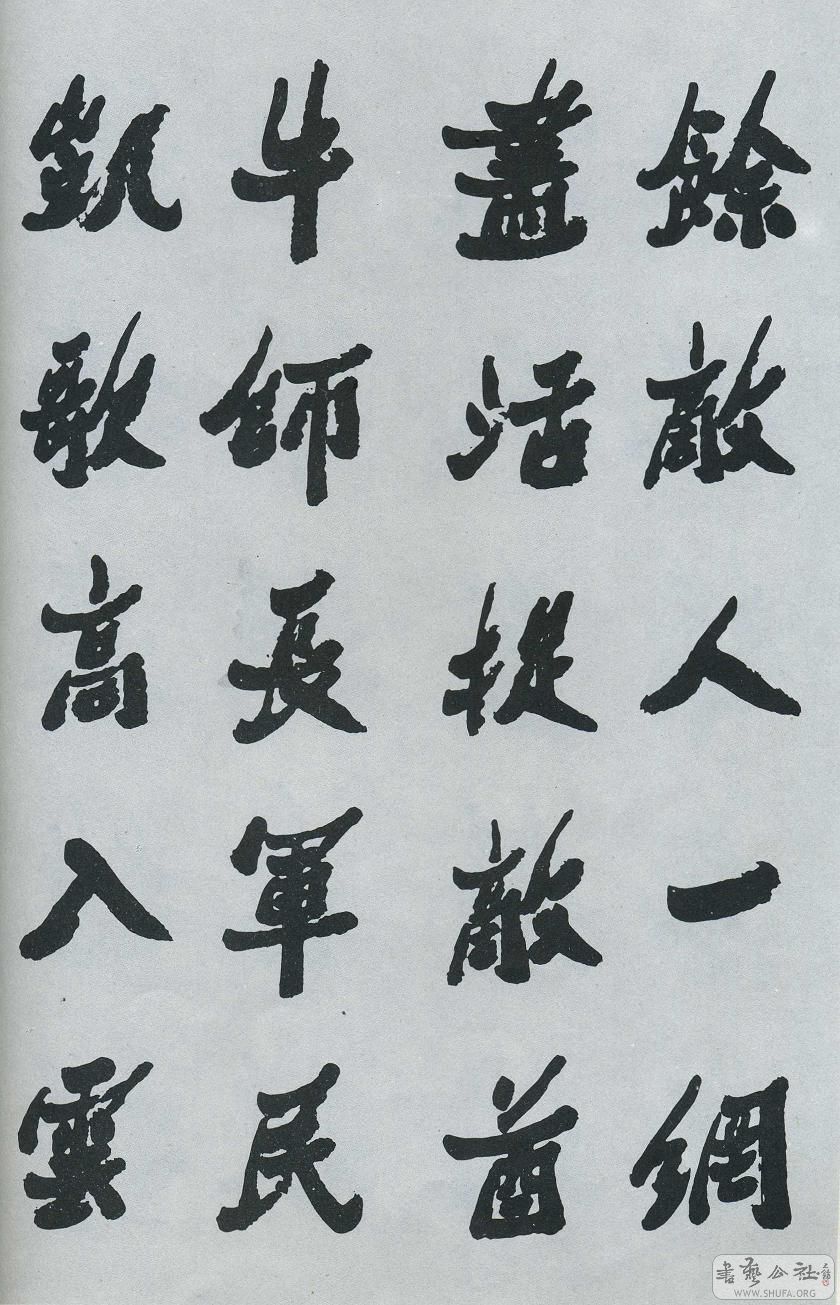 餘敵人一網
盡活捉敵酋
牛師長軍民
凱歌高入雲
書藝公社
WWW.SHUFA.ORG